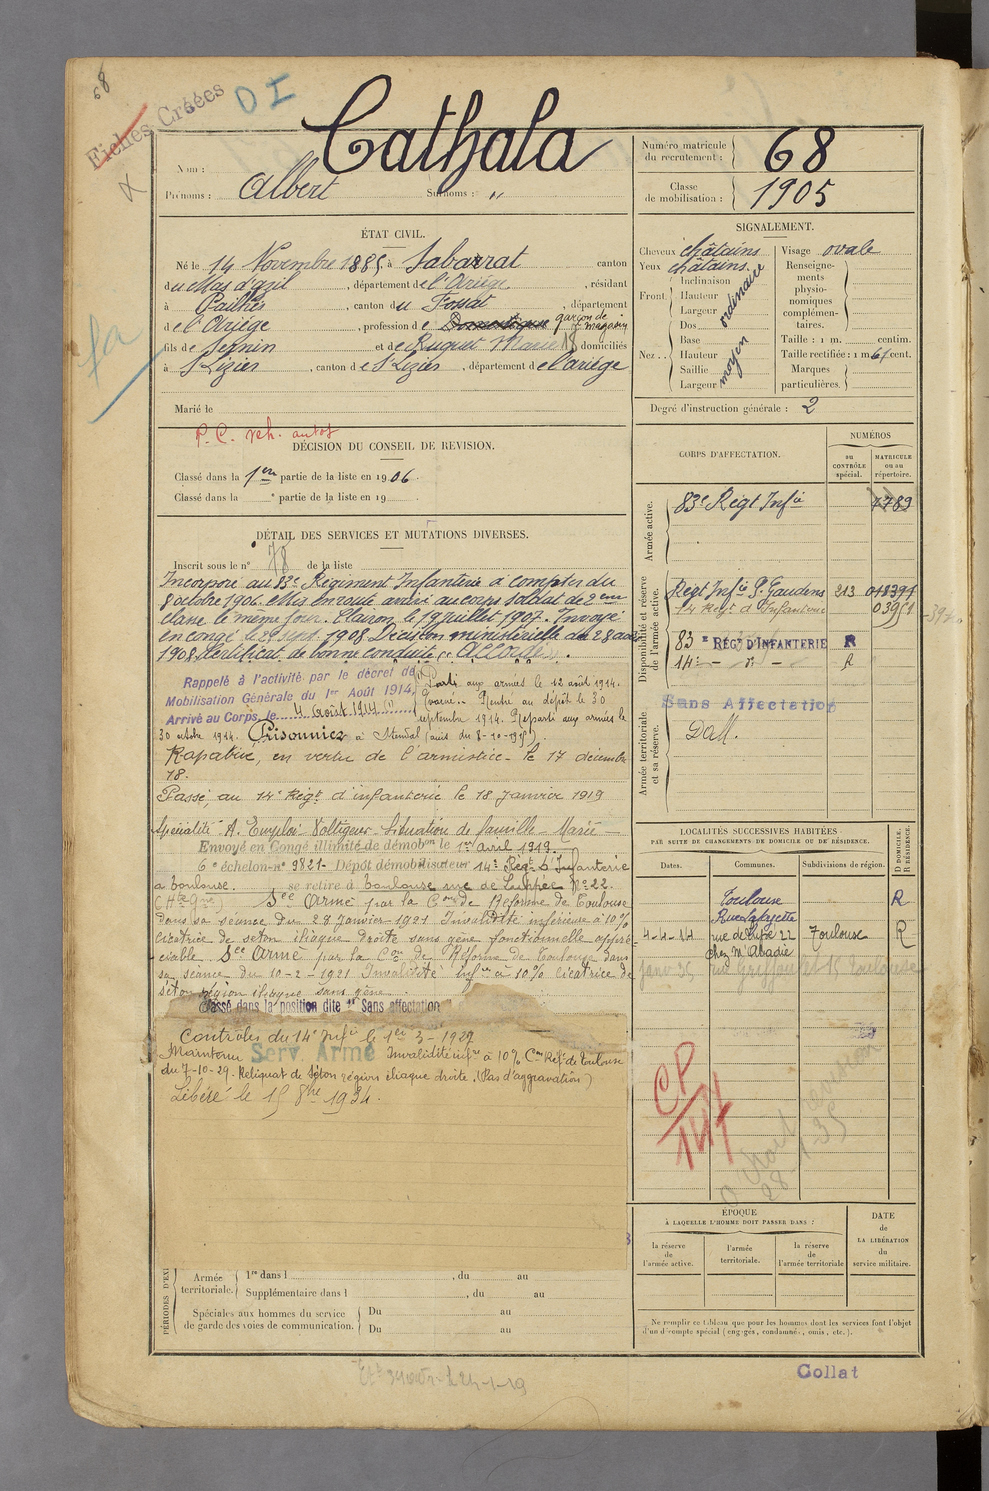 68
Fiches Créées
D I
Nom : Cathala
Prénoms : Albert Surnoms : "
Numéro matricule du recrutement : 68
Classe de mobilisation : 1905
ÉTAT CIVIL.
Né le 14 Novembre 1885, à Sabarrat canton
du Mas d'azil, département de l'Ariège, résidant
à Pailhès, canton du Fossat, département
de l'Ariège, profession de Domestique garçon de magasin
fils de Sernin et de Ruquet Marie domiciliés
à St Lizier, canton de St Lizier, département de l'ariège
Marié le
SIGNALEMENT.
Cheveux châtains
Yeux châtains
Front Inclinaison Hauteur Largeur ordinaire
Nez Dos Base Hauteur Saillie Largeur moyen
Visage ovale
Renseignements physionomiques complémentaires.
Taille : 1 m. centim.
Taille rectifiée : 1 m 61 cent.
Marques particulières.
Degré d'instruction générale : 2
P.C. reh. autos
DÉCISION DU CONSEIL DE REVISION.
Classé dans la 1re partie de la liste en 1906.
Classé dans la e partie de la liste en 19
DÉTAIL DES SERVICES ET MUTATIONS DIVERSES.
Inscrit sous le n° 78 de la liste
Incorporé au 83e Régiment Infanterie à compter du
8 octobre 1906. Mis en route arrivé au corps soldat de 2eme
classe le même jour. Clairon le 19 juillet 1907. Envoyé
en congé le 29 sept. 1908 Décision ministérielle du 28 août
1908. Certificat de bonne conduite « Accordé ».
Rappelé à l'activité par le décret de
Mobilisation Générale du 1er Août 1914,
Arrivé au Corps le 4 Août 1914 (1)
Parti aux armées le 12 août 1914.
Rentré au dépôt le 30
septembre 1914. Reparti aux armées le
30 octobre 1914. Prisonnier à Stendal (avis du 8-10-1915).
Rapatrié, en vertu de l'armistice le 17 décembre
18.
Passé au 14e Régt d'infanterie le 18 Janvier 1919
Spécialité A. Emploi Voltigeur Situation de famille Marié
Envoyé en Congé illimité de démobon le 1er avril 1919.
6e échelon n° 9821 - Dépôt démobilisateur 14e Régt d'Infanterie
à Toulouse. se retire à Toulouse rue de Luppé N° 22.
(Hte Gne) Sce Armé par la Con de Réforme de Toulouse
dans sa séance du 28 Janvier 1921 Invalidité inférieure à 10%
cicatrice de seton iliaque droite sans gêne fonctionnelle appré
ciable. Sce Armé par la Con de Réforme de Toulouse dans
sa séance du 10-2-1921 Invalidité infre à 10% cicatrice de
séton région iliaque sans gêne.
Classé dans la position dite "Sans affectation"
Contrôles du 14e Infie le 1er 3-1927
Maintenu Serv. Armé Invalidité infre à 10% Con Réf. de Toulouse
du 7-10-29. Reliquat de Séton région iliaque droite. (Pas d'aggravation)
Libéré le 15 8bre 1934.
CORPS D'AFFECTATION.
NUMÉROS
au CONTRÔLE spécial.
MATRICULE ou au répertoire.
Armée active.
83e Régt Infie 7789
Disponibilité et réserve de l'armée active.
Régt Infie St Gaudens 213 018391
14 Régt d'Infanterie 03951
83e RÉG. D'INFANTERIE R
14e - d° - R
Armée territoriale et sa réserve.
Sans Affectation
DaM.
LOCALITÉS SUCCESSIVES HABITÉES
PAR SUITE DE CHANGEMENTS DE DOMICILE OU DE RÉSIDENCE.
Dates.
Communes.
Subdivisions de région.
D DOMICILE. R RÉSIDENCE.
Toulouse R
Rue Lafayette
4-4-14 rue de Luppé 22 Toulouse R
chez Mr Abadie
Janv 25 Toulouse
CP
147
ÉPOQUE
À LAQUELLE L'HOMME DOIT PASSER DANS :
la réserve de l'armée active.
l'armée territoriale.
la réserve de l'armée territoriale
DATE de LA LIBÉRATION du service militaire.
PÉRIODES D'EX
Armée territoriale.
1re dans l , du au
Supplémentaire dans l , du au
Spéciales aux hommes du service de garde des voies de communication.
Du au
Du au
Ne remplir ce tableau que pour les hommes dont les services font l'objet
d'un décompte spécial (engagés, condamnés, omis, etc.).
Collat